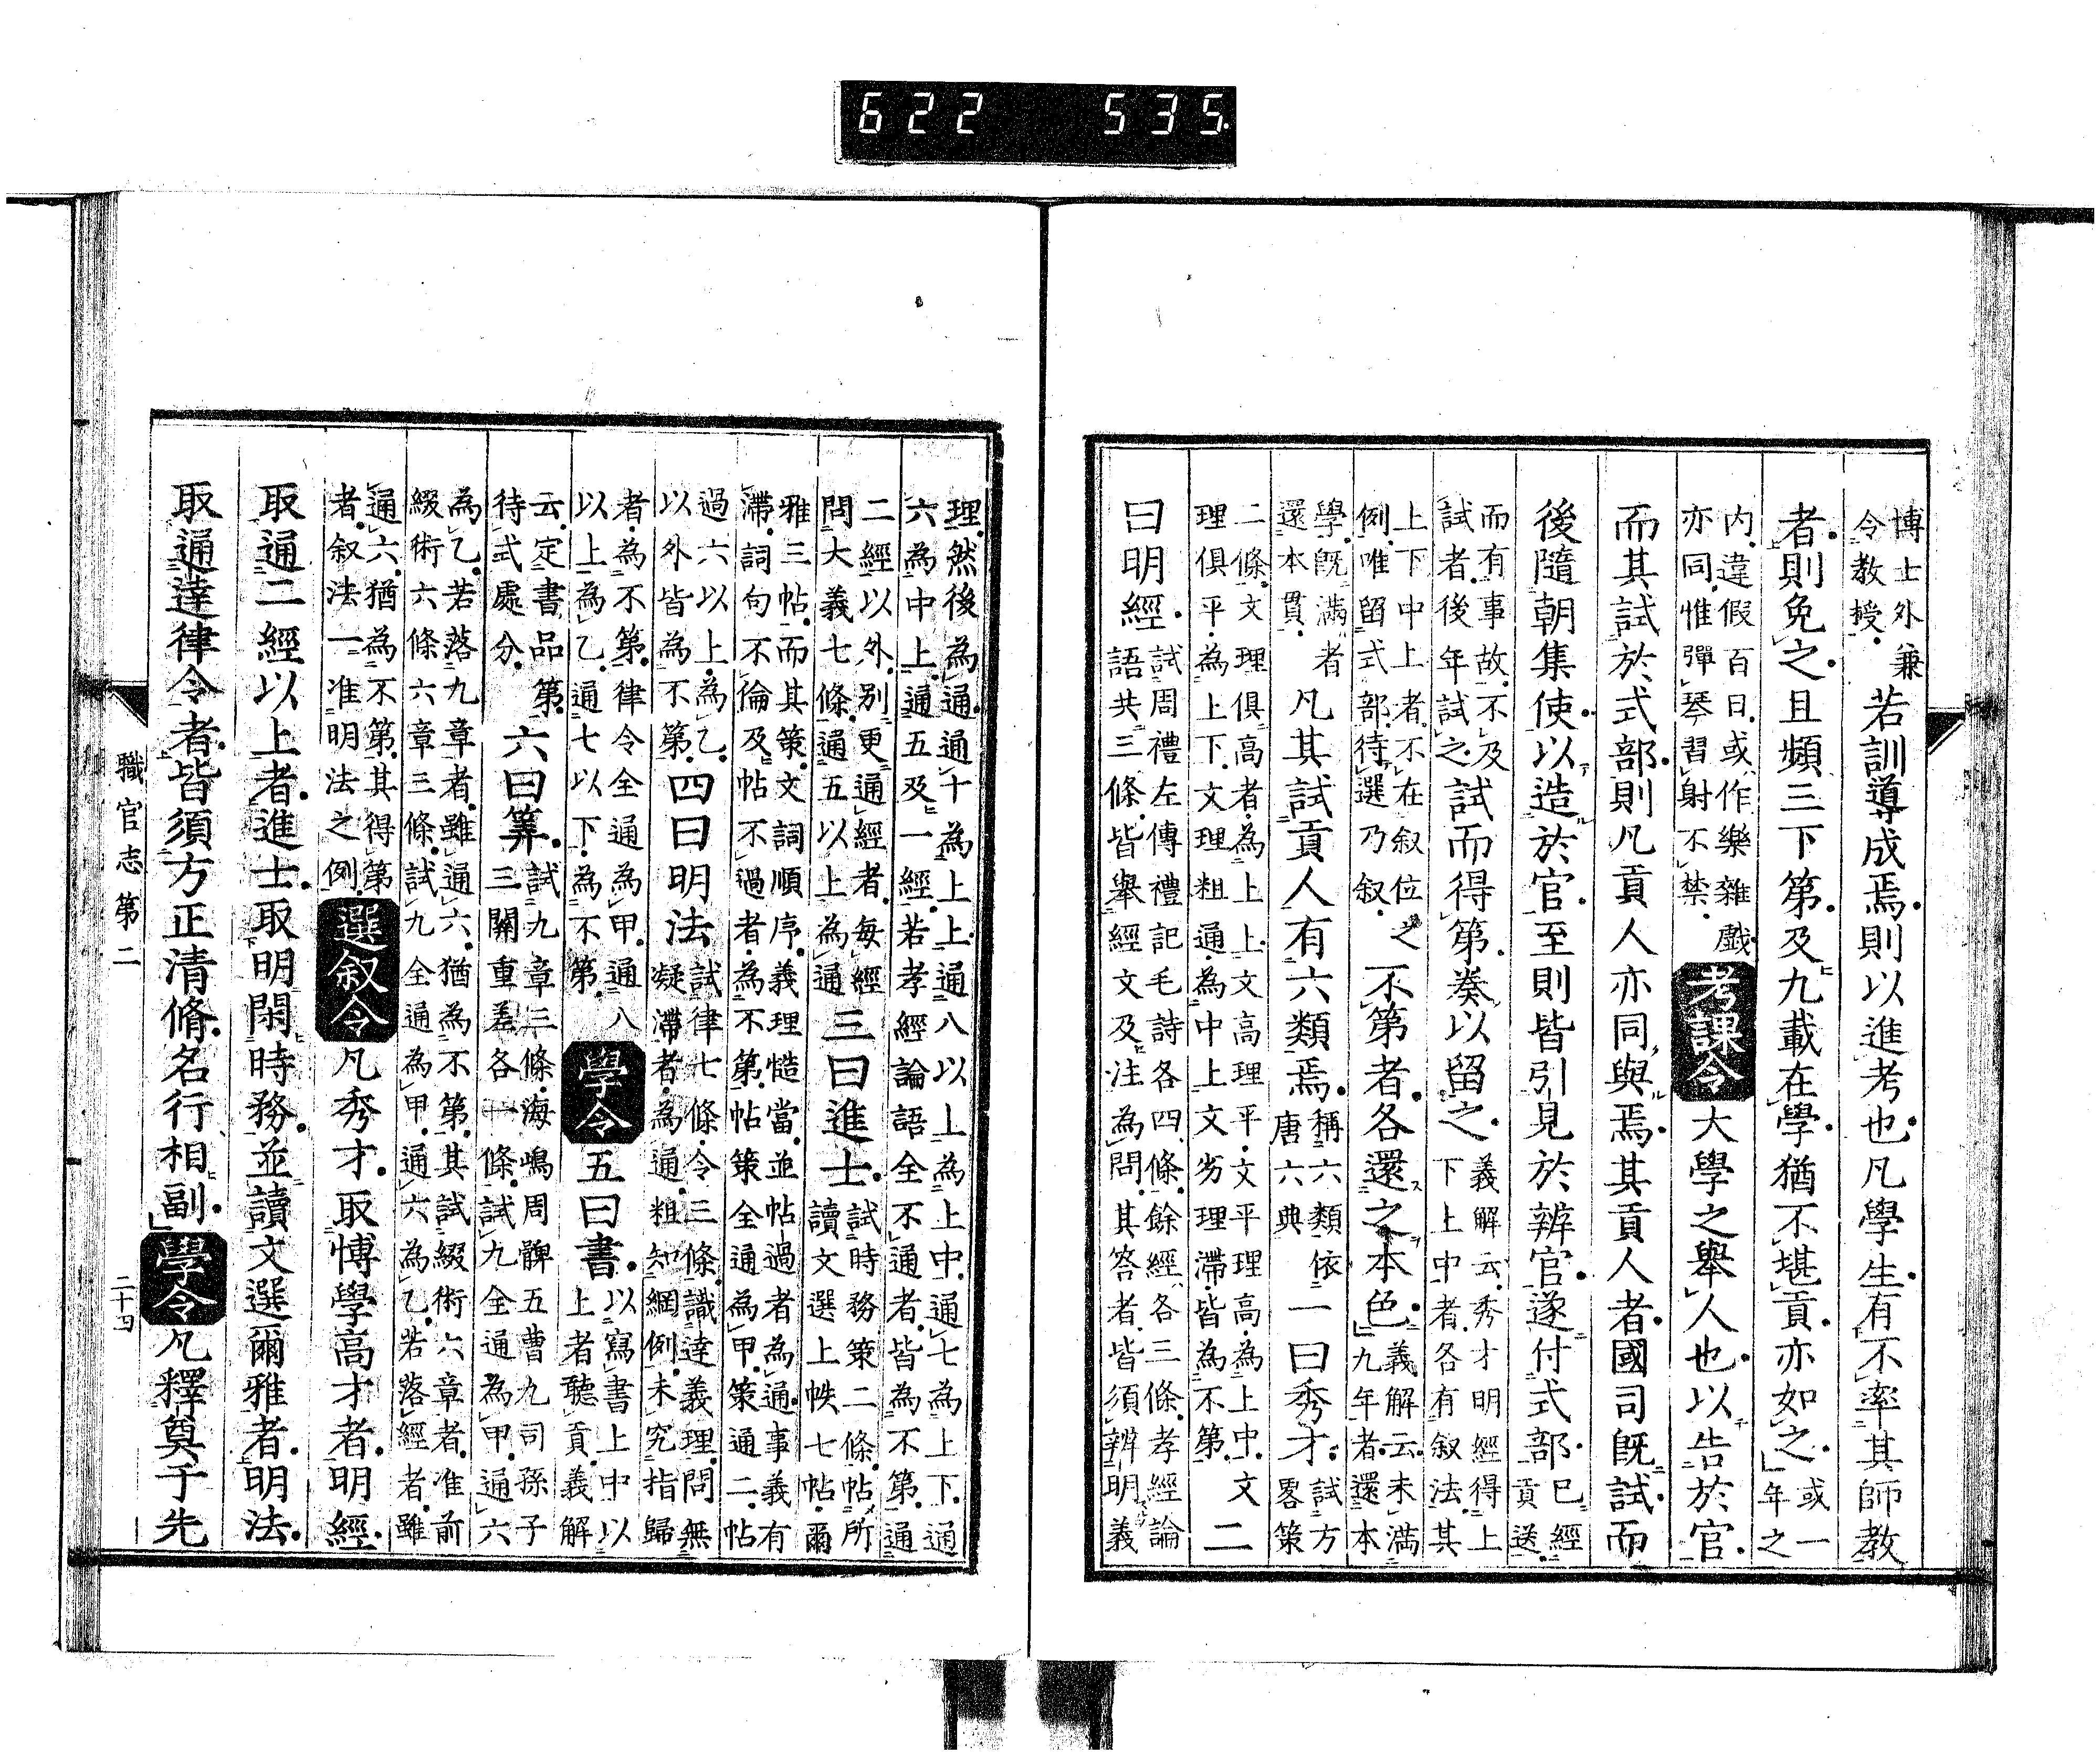 博士外兼令教授。若訓導成焉。則以進考也。凡學生。有不率其師教
者。則免之。且頻三下第。及九載在學。猶不堪貢。亦如之。或一年之
内。違假百日。或作樂雜戲亦同。惟彈琴習射不禁。考課令大學之舉人也。以告於官。
而其試於式部。則凡貢人亦同與焉。其貢人者。國司既試。而
後隨朝集使。以造於官。至則皆引見於辨官。遂付式部。已經貢送。
而有事故。不及試者。後年試之。試而得第。奏以留之。義解云。秀才明經得上下上中者。各有叙法。其
上下中上者。不在叙位之例。唯留式部。待選乃叙。不第者。各還之本色。義解云。未滿九年者。還本
學。既滿者還本貫。凡其試貢人有六類焉。稱六類依唐六典一曰秀才。試方畧策
二條。文理俱高者。為上上。文高理平。文平理高。為上中。文理俱平。為上下。文理粗通。為中上。文劣理滯。皆為不第。二
曰明經。試周禮左傳禮記毛詩各四條。餘經各三條。孝經論語共三條。皆舉經文及注為問。其答者。皆須辨明義
理。然後為通。通十為上上。通八以上為上中。通七為上下。通六為中上。通五及一經。若孝經論語全不通者。皆為不第。通
二經以外。別更通經者。每經問大義七條。通五以上為通三曰進士。試時務策二條。帖所讀文選上帙七帖。爾
雅三帖。而其策。文詞順序。義理慥當。並帖過者為通。事義有滯。詞句不倫。及帖不過者。為不第。帖策全通為甲。策通二。帖
過六以上。為乙。以外皆為不第。四曰明法試律七條。令三條。識達義理。問無疑滯者。為通。粗知綱例。未究指歸
者。為不第。律令全通為甲。通八以上為乙。通七以下。為不第。學令五曰書。以寫書上中以上者聽貢。義解
云。定書品第。待式處分。六曰筭。試九章三條。海嶋周髀五曹九司孫子三開重差各一條。試九全通為甲。通六
為乙。若落九章者。雖通六。猶為不第。其試綴術六章者。准前綴術六條六章三條。試九全通為甲。通六為乙。若落經者。雖
通六。猶為不第。其得第者。叙法一准明法之例。選叙令凡秀才。取博學高才者。明經。
取通二經以上者。進士。取明閑時務。並讀文選爾雅者。明法。
取通達律令者。皆須方正清脩。名行相副。學令凡釋奠于先
職官志第二
二十四
622 535